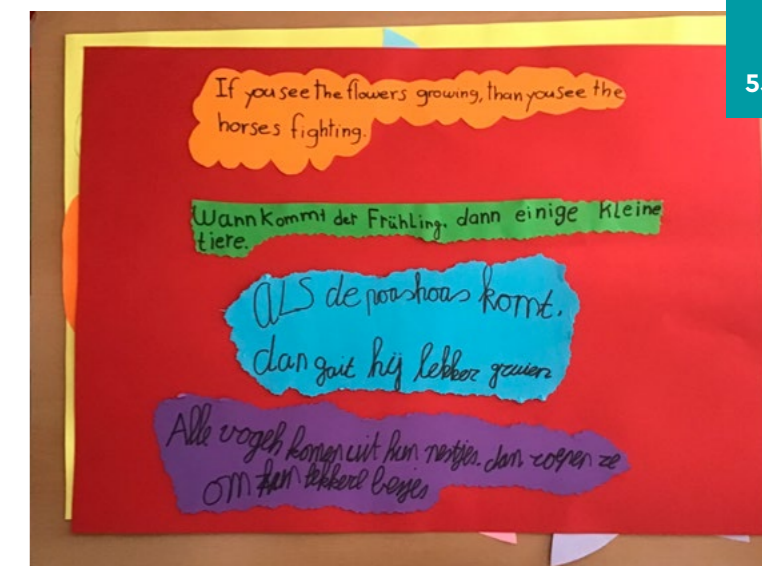 5
If you see the flowers growing, than you see the
horses fighting.
Wann kommt der Frühling, dann einige kleine
tiere.
ALS de poashoas komt,
dan gait hij lekker grauien
Alle vogels komen uit hun nestjes. dan roepen ze
om hun lekkere besjes